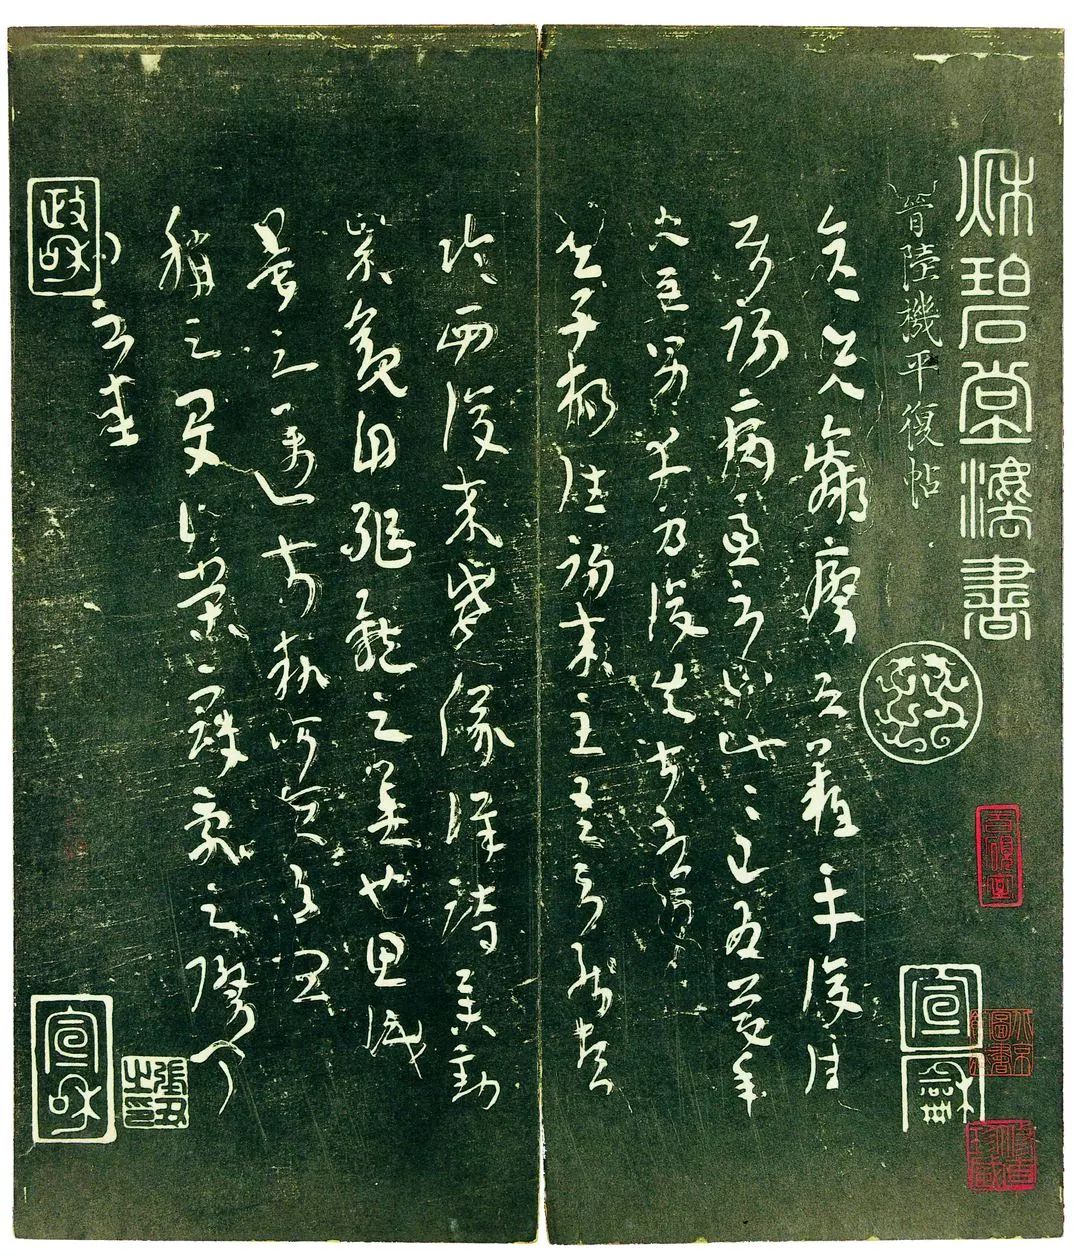 秋碧堂法書
晉陸機平復帖
彦先羸瘵恐難平復往
屬初病慮不止此此已為慶承
使唯男幸為復失前憂耳
吳子楊往初來主吾不能盡
臨西復來威儀詳跱舉動
成觀自軀體之美也思識
量之邁前執所恆有宜
稱之夏伯榮寇亂之際聞
問不悉
宣和
政和
宣和